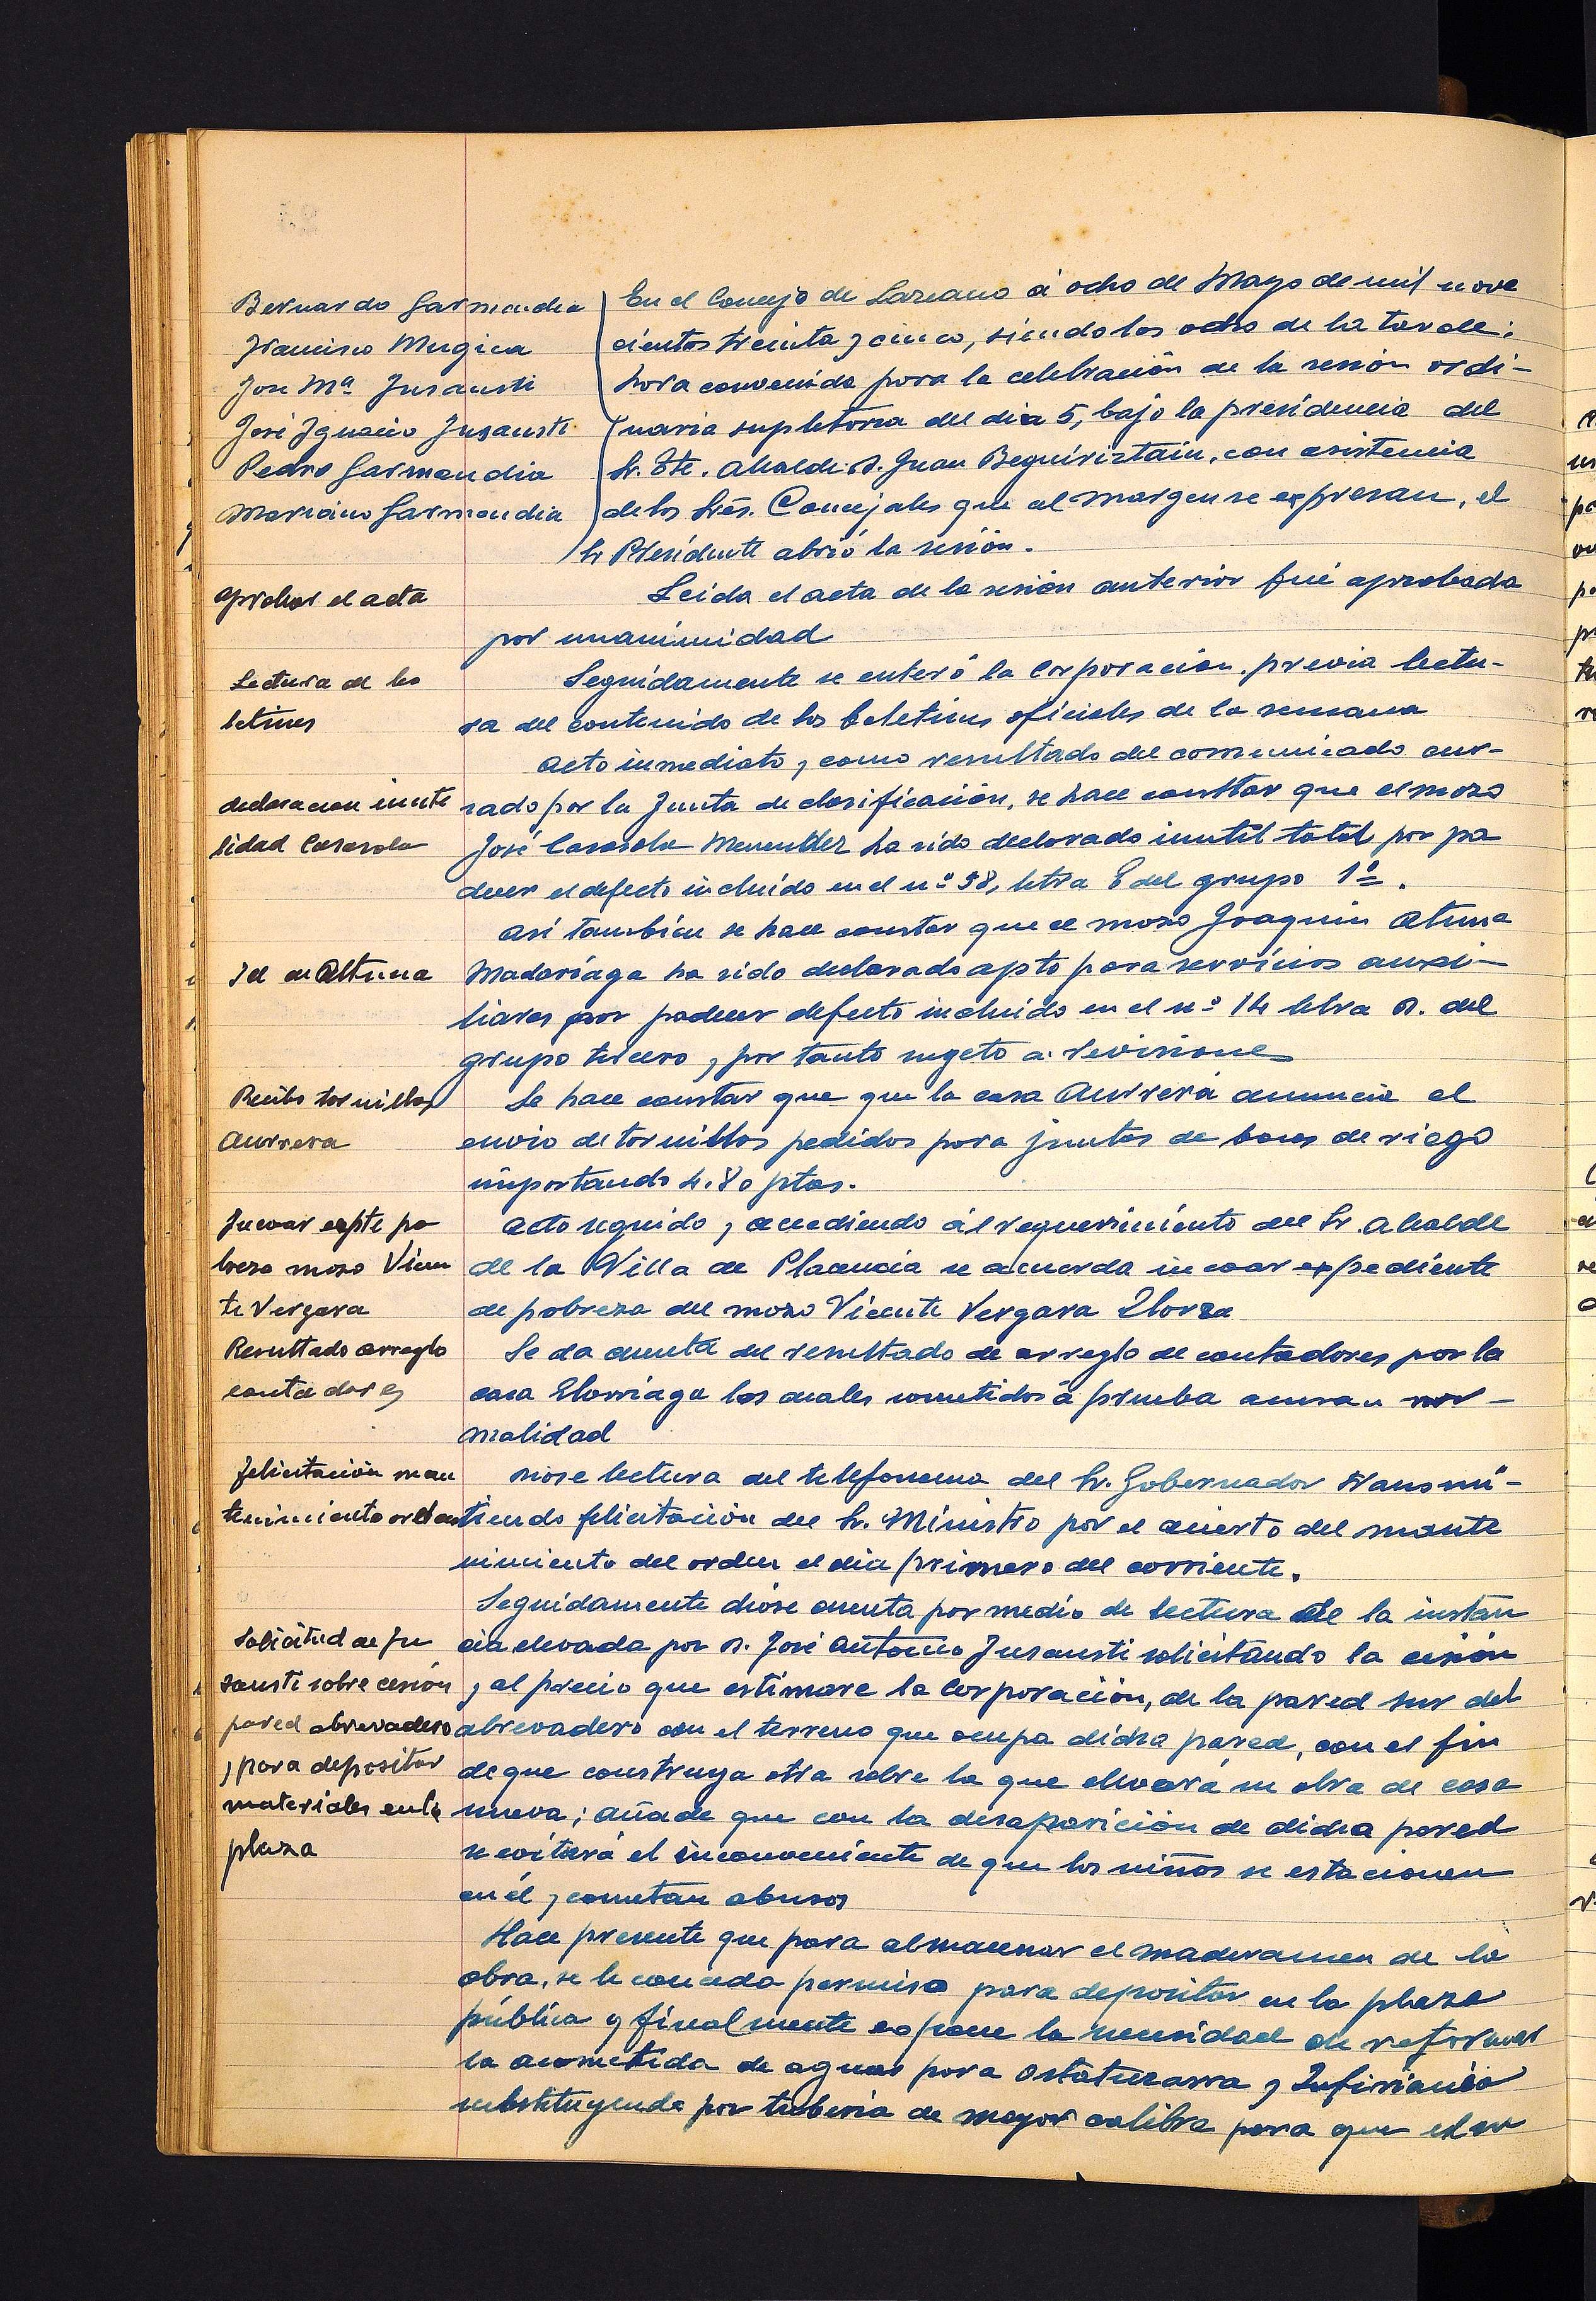 Bernardo Garmendia
Francisco Mugica
Jose Mª Insausti
José Ignacio Insausti
Pedro Garmendia
Mariano Garmendia
En el Concejo de Lazcano á ocho de Mayo de mil nove
cientos treinta y cinco, siendo las ocho de la tarde:
hora convenida para la celebración de la sesión ordi-
naria supletoria del dia 5, bajo la presidencia del
Sr. Tte. Alcalde D. Juan Beguiristain, con asistencia
de los Sres. Concejales que al margen se expresan, el
Sr Presidente abrió la sesión.
Aprobar el acta
Leida el acta de la sesión anterior fué aprobada
por unanimidad
Lectura de bo
letines
Seguidamente se enteró la Corporación previa lectu-
ra del contenido de los boletines oficiales de la semana
Acto inmediato, como resultado del comunicado cur-
declaracion inuti
lidad Casasola
sado por la Junta de clasificación, se hace constar que el mozo
José Casasola Menendez ha sido declarado inutil total por pa
decer el defecto incluido en el nº 38, letra E del grupo 1º.
Asi tambien se hace constar que el mozo Joaquin Atuna
Id de Altuna
Madariaga ha sido declarado apto para servicios auxi-
liares por padecer defecto incluido en el nº 14 letra D. del
grupo tercero y por tanto sugeto a revisiones
Recibo tornillos
Aurrera
Se hace constar que que la casa Aurrerá anuncia el
envio de tornillos pedidos para juntas de bocas de riego
importando 4.80 ptas.
Incoar expte po
breza mozo Vicen
te Vergara
Acto seguido y accediendo ál requerimiento del Sr. Alcalde
de la Villa de Placencia se acuerda incoar expediente
de pobreza del mozo Vicente Vergara Elorza
Resultado arreglo
contadores
Se da cuenta del resultado de arreglo de contadores por la
casa Elorriaga los cuales sometidos á prueba acusan nor-
malidad
Felicitación man
tenimiento orden
Diose lectura del telefonema del Sr. Gobernador transmi-
tiendo felicitación del Sr. Ministro por el acierto del mante
nimiento del orden el dia primero del corriente.
Solicitud de In
sausti sobre cesión
pared abrevadero
y para depositar
materiales en la
plaza
Seguidamente dióse cuenta por medio de lectura de la instan
cia elevada por D. José Antonio Insausti solicitando la cesión
y al precio que estimare la Corporación, de la pared sur del
abrevadero con el terreno que ocupa dicha pared, con el fin
de que construya otra sobre la que elevará su obra de casa
nueva; añade que con la desaparición de dicha pared
se evitará el inconveniente de que los niños se estacionen
en él y cometan abusos
Hace presente que para almacenar el maderamen de la
obra, se le conceda permiso para depositar en la plaza
pública y finalmente expone la necesidad de reformar
la acometida de aguas para Ostatuzarra y
substituyendo por tuberia de mayor calibre para que